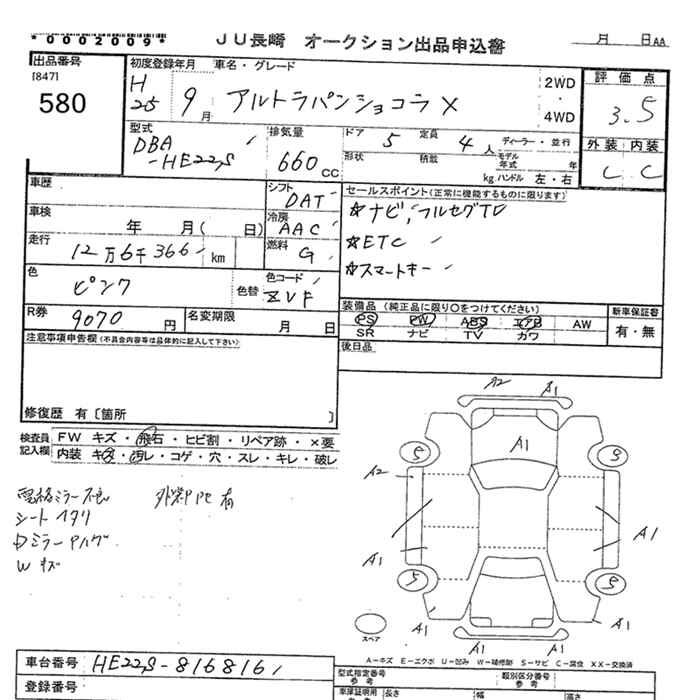 *0002009*
JU長崎 オークション出品申込書
月 日 AA
出品番号
[847]
580
初度登録年月
H25 9月
車名・グレード
アルトラパンショコラ X
2WD
・
4WD
評価点
3.5
外装 内装
C C
型式
DBA
-HE22S
排気量
660 CC
ドア 5
定員 4人
形状
積載 kg
ディーラー・並行
モデル年式 年
ハンドル 左・右
車歴
シフト DAT
セールスポイント(正常に機能するものに限ります)
☆ナビ,フルセグTV
☆ETC
☆スマートキー
車検 年 月( 日)
冷房 AAC
走行 12万6千366 km
燃料 G
色 ピンク
色替
色コード ZVF
R券 9070円
名変期限 月 日
装備品(純正品に限り○をつけてください)
PS PW ABS エアB AW
SR ナビ TV カワ
新車保証書
有・無
後日品
注意事項申告欄(不具合内容等は具体的に記入して下さい)
修復歴 有〔箇所 〕
検査員記入欄
FW キズ・飛石・ヒビ割・リペア跡・×要
内装 キズ・汚レ・コゲ・穴・スレ・キレ・破レ
シート ヘタリ
W キズ
A2 A1
A1
S S
A2
A1
A1
S S
A1 A1
A1 A1
スペア
車台番号 HE22S-816816
登録番号
A=キズ E=エクボ U=凹み W=補修跡 S=サビ C=腐食 XX=交換済
型式指定番号
参考
類別区分番号
参考
車庫証明用
参考
長さ 幅 高さ